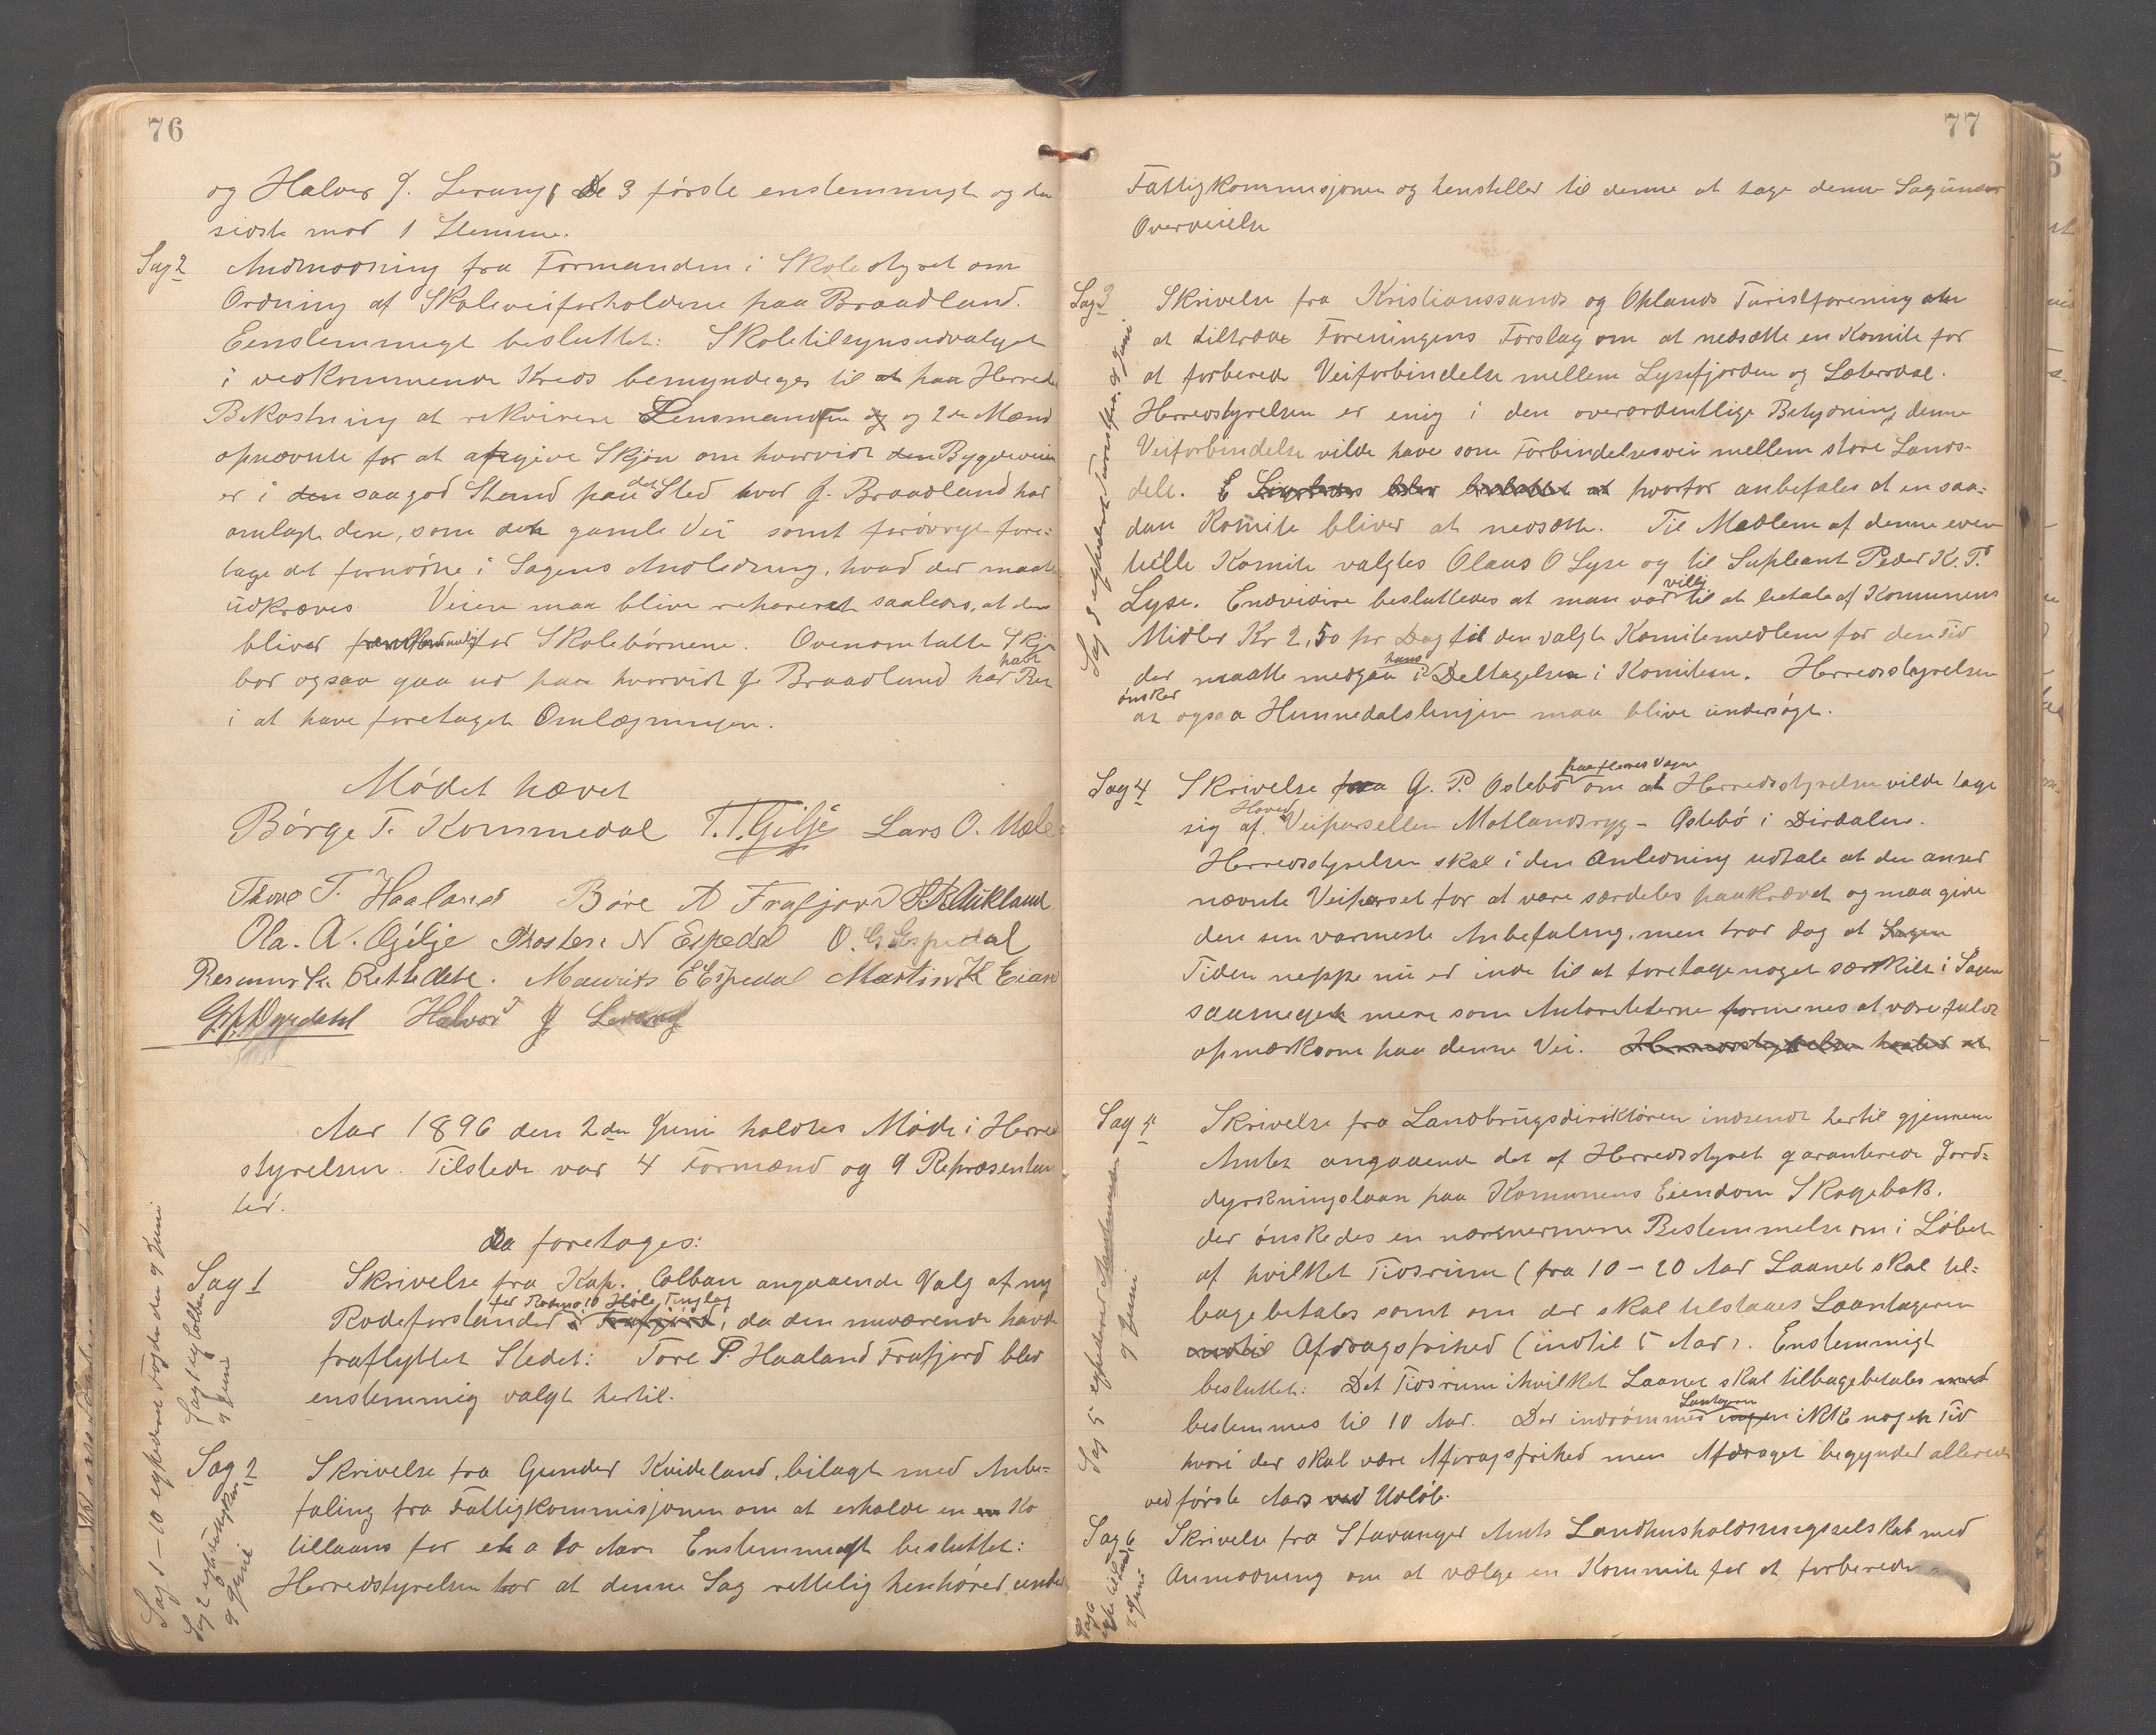 76
og Halvor J. Lerang, De 3 første enstemmigt og den
sidste mod 1 Stemme.
Sag 2 Andmodning fra Formanden i Skolestyret om
Ordning af Skoleveiforholdene paa Braadland.
Eenstemmigt besluttet: Skoletilsynsudvalget
i vedkommende Kreds bemyndiges til at paa Herreds
Bekostning at rekvirere Lensmanden og og 2de Mænd
opnævnte for at afgive Skjøn om hvorvidt den Bygdeveien
er i den saa god Stand paa det Sted hvor J. Braadland har
omlagt den, som den gamle Vei samt forøvrigt fore-
tage det fornødne i Sagens Anledning, hvad der maatte
udkræves. Veien maa blive repareret saaledes, at den
bliver fremkommelig for Skolebørnene. Ovenomtalte Skjøn
bør ogsaa gaa ud paa hvorvidt J. Braadland har havt Ret
i at have foretaget Omlægningen.
Mødet hævet
Børge T. Kommedal T. T. Gilje Lars O. Mæle
Thore T. Haaland Børe A Frafjord Aukland
Ola. A. Gilje Thosten N Espedal O. G. Espedal
Rasmus Rettedal. Mauritz E Espedal Martin K Eian
Dyrdahl Halvor J Lerang
Aar 1896 den 2den Juni holdtes Møde i Herreds
styrelsen. Tilstede var 4 Formænd og 9 Repræsentan
ter.
Da foretoges:
Sag 1 Skrivelse fra Kap. Colban angaaende Valg af ny
for Rode no 10 Høle Tinglag
Rodeforstander i Frafjord, da den nuværende havde
fraflyttet Stedet: Tore P. Haaland Frafjord blev
enstemmig valgt hertil.
Sag 2 Skrivelse fra Gunder Kvideland, bilagt med Anbe-
faling fra Fattigkommisjonen om at erholde en en Ko
tillaans for et a to Aar. Enstemmigt besluttet:
Herredstyrelsen tror at denne Sag rettelig henhører under
Sag 1-10 expederet Fogden 9 Juni
Sag 1 exp Colban
9 Juni
Sag 2 exp Fattigkom
9 Juni
77
Fattigkommisjonen og henstiller til denne at tage denne Sag under
Overveielse
Sag 3 Skrivelse fra Kristianssands og Oplands Turistforening om
at tiltræde Foreningens Forslag om at nedsætte en Komite for
at forberede Veiforbindelse mellem Lysefjorden og Sætersdal.
Herredstyrelsen er enig i den overordentlige Betydning denne
Veiforbindelse vilde have som Forbindelsesvei mellem store Lands-
dele. hvorfor anbefales at en saa-
dan Komite bliver at nedsætte. Til Medlem af denne even
tuelle Komite valgtes Olaus O Lyse og til Supleant Peder K. P.
Lyse. Endvidere besluttedes at man var villig til at betale af Kommunens
Midler Kr 2,50 pr Dag til den valgte Komitemedlem for den Tid
der maatte medgaa i hans Deltagelse i Komiteen. Herredsstyrelsen
ønsker
at ogsaa Hunnedalslinjen maa blive undersøgt.
Sag 4 Skrivelse fra G. P. Østebø paa fleres Vegne om at Herredsstyrelsen vilde tage
sig af Hoved Veiparsellen Motlandsryg - Østebø i Dirdalen.
Herredsstyrelsen skal i den Anledning udtale at den anser
nævnte Veiparsel for at være særdeles paakrævet og maa give
den sin varmeste Anbefaling, men tror dog at Sagen
Tiden neppe nu er inde til at foretage noget særskilt i Sagen
saameget mere som Autoriteterne formenes at være fuldt
opmærksom paa denne Vei. Herredsstyrelsen haaber at
Sag 5 Skrivelse fra Landbrugsdirektøren indsendt hertil gjennem
Amtet angaaende det af Herredsstyret garanterede Jord-
dyrkningslaan paa Kommunens Eiendom Skogebak.
der ønskedes en nærmere Bestemmelse om i Løbet
af hvilket Tidsrum (fra 10 - 20 Aar Laanet skal til-
bagebetales samt om der skal tilstaaes Laantageren
indtil Afdragsfrihed (indtil 5 Aar). Enstemmigt
besluttet: Det Tidsrum i hvilket Laanet skal tilbagebetales med
bestemmes til 10 Aar. Der indrømmes Lantageren ingen ikke nogen Tid
hvori der skal være Afdragsfrihed men Afdraget begynder allerede
ved første Aars ved Udløb.
Sag 6 Skrivelse fra Stavanger Amts Landhusholdningsselskab med
Anmodning om at vælge en Kommite for at forberede
Sag 3 expederet Turistfor. 9 Juni.
Sag 5 expederet Amtmanden
9 Juni
Sag 6
exp til Landh.
9 Juni